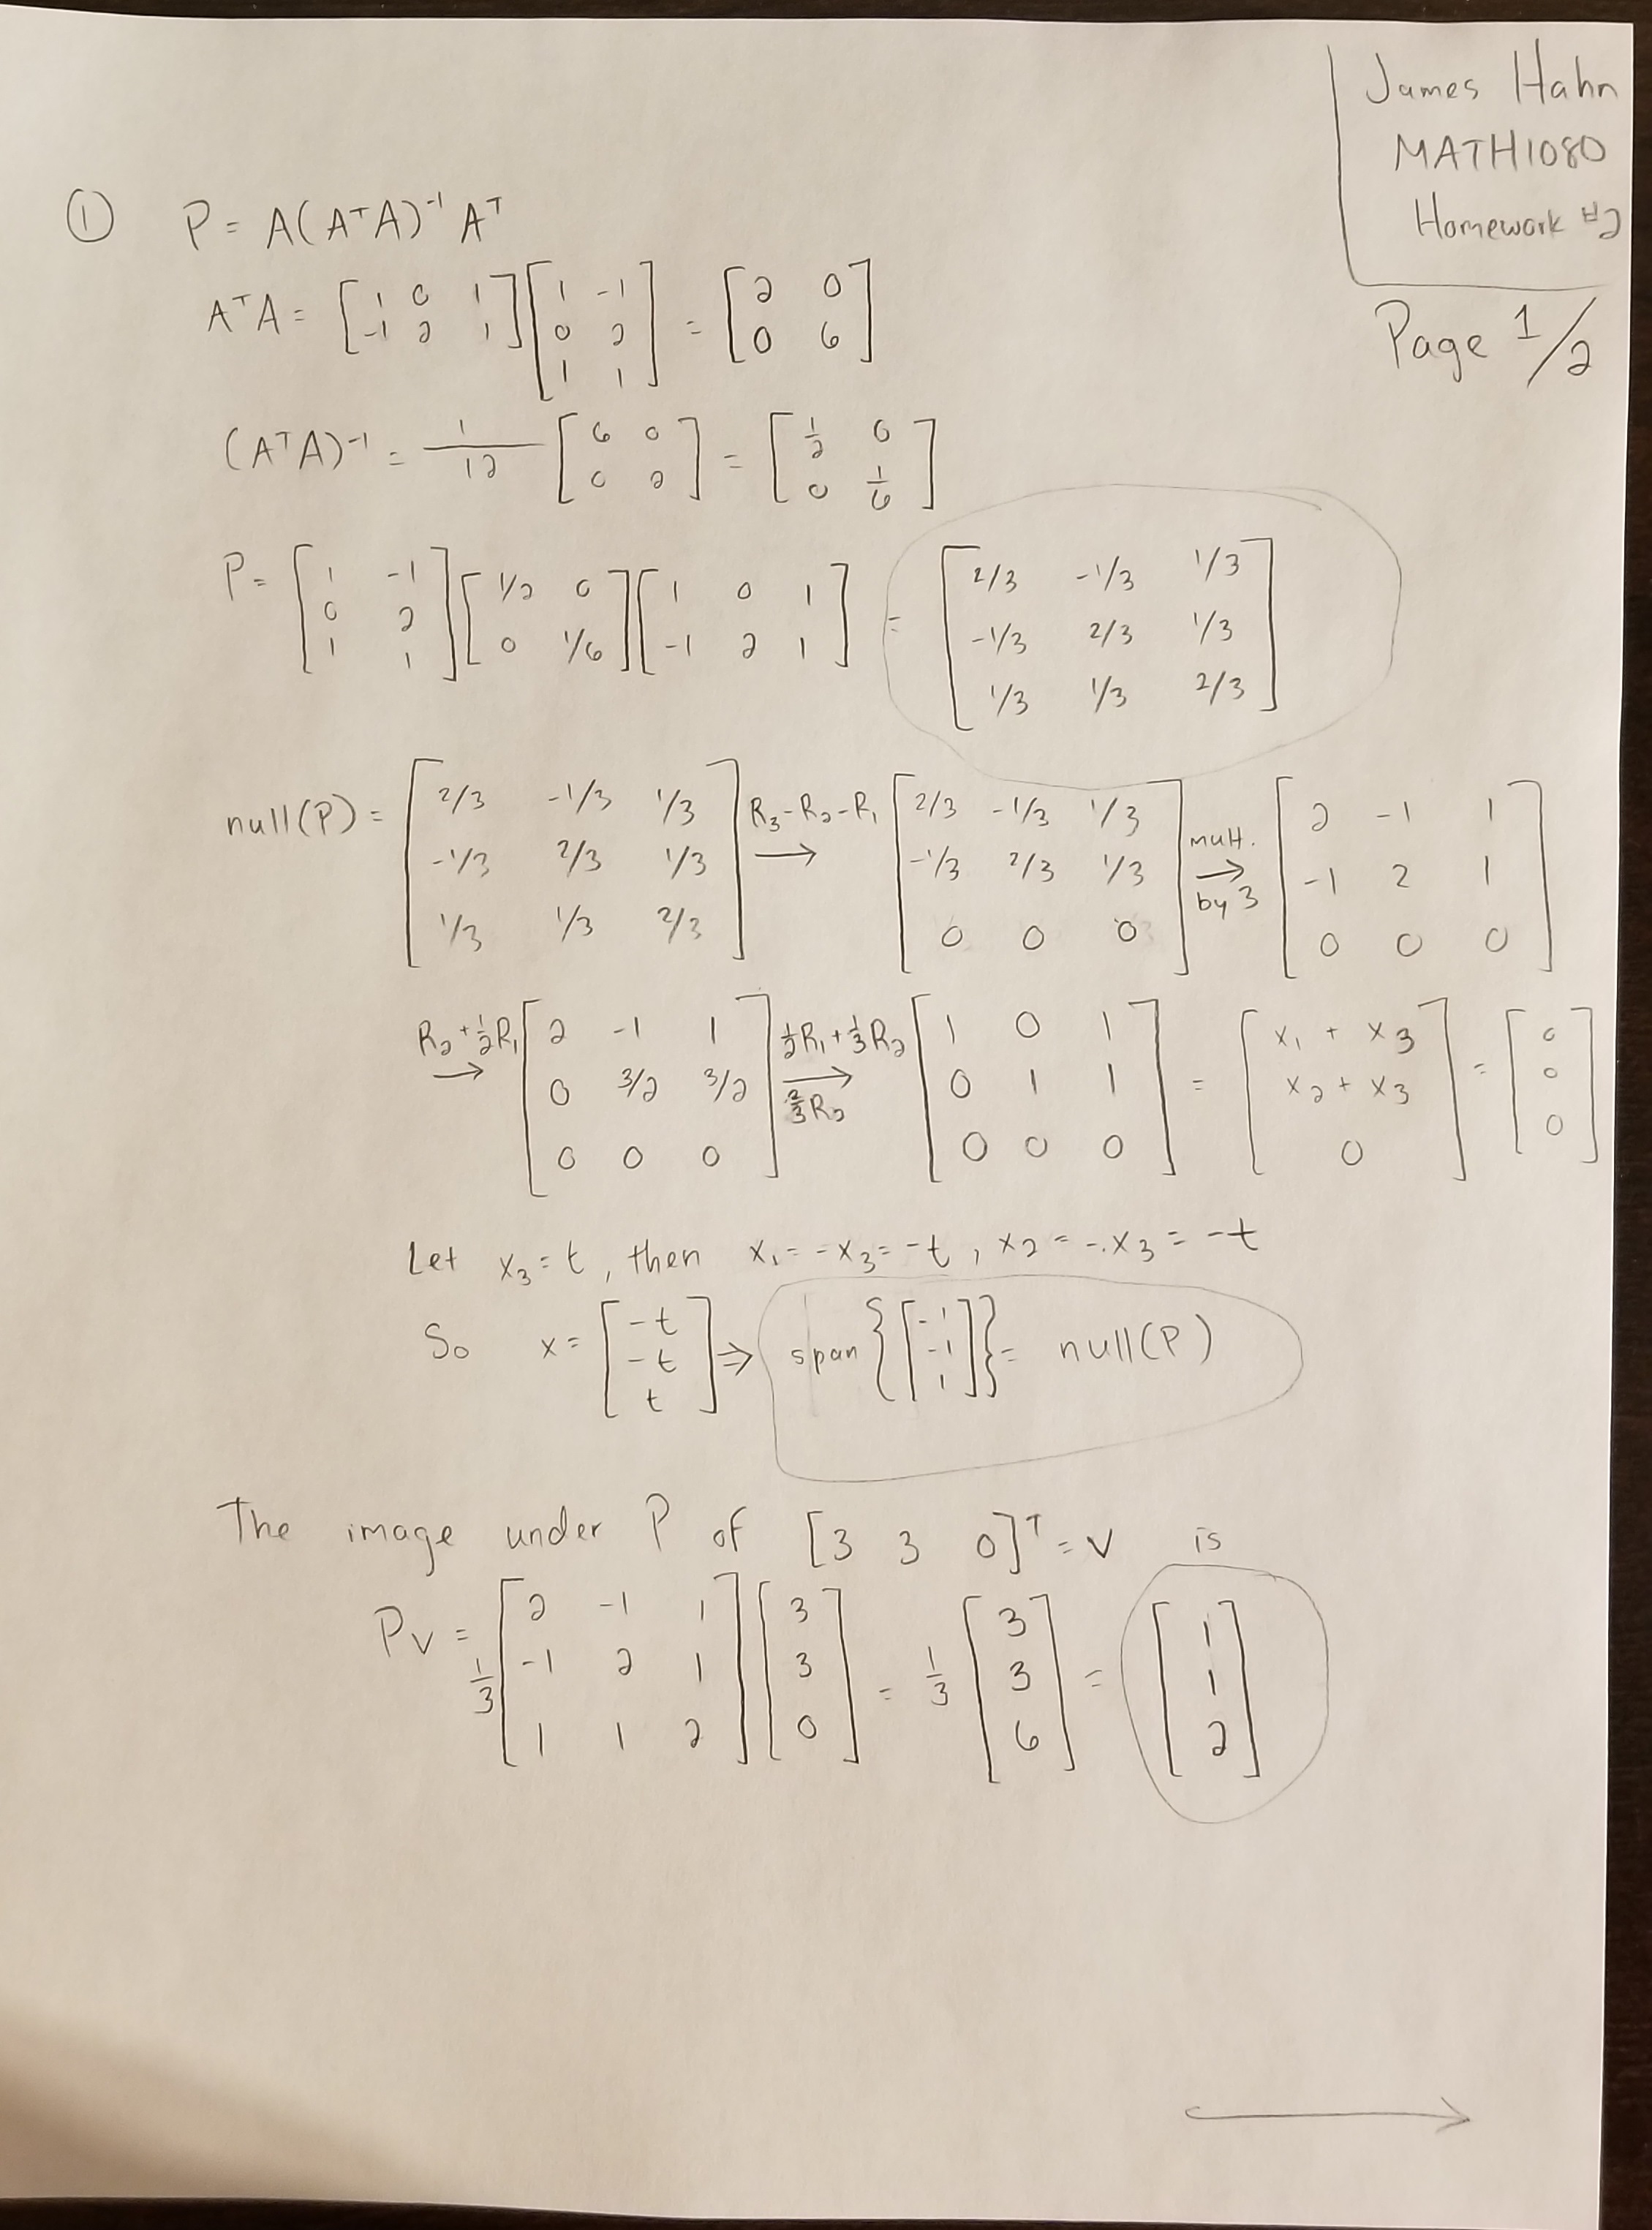 James Hahn
MATH1080
Homework #2
Page 1/2
① P = A(AᵀA)⁻¹Aᵀ
AᵀA = [1 0 1; -1 2 1][1 -1; 0 2; 1 1] = [2 0; 0 6]
(AᵀA)⁻¹ = 1/12 [6 0; 0 2] = [1/2 0; 0 1/6]
P = [1 -1; 0 2; 1 1][1/2 0; 0 1/6][1 0 1; -1 2 1] = [2/3 -1/3 1/3; -1/3 2/3 1/3; 1/3 1/3 2/3]
null(P) = [2/3 -1/3 1/3; -1/3 2/3 1/3; 1/3 1/3 2/3] R₃-R₂-R₁ → [2/3 -1/3 1/3; -1/3 2/3 1/3; 0 0 0] mult. → by 3 [2 -1 1; -1 2 1; 0 0 0]
R₂+½R₁ → [2 -1 1; 0 3/2 3/2; 0 0 0] ½R₁+⅓R₂ → ⅔R₂ [1 0 1; 0 1 1; 0 0 0] = [x₁ + x₃; x₂ + x₃; 0] = [0; 0; 0]
Let x₃ = t, then x₁ = -x₃ = -t, x₂ = -x₃ = -t
So x = [-t; -t; t] ⇒ span{[-1; -1; 1]} = null(P)
The image under P of [3 3 0]ᵀ = v is
Pv = 1/3 [2 -1 1; -1 2 1; 1 1 2][3; 3; 0] = 1/3 [3; 3; 6] = [1; 1; 2]
→